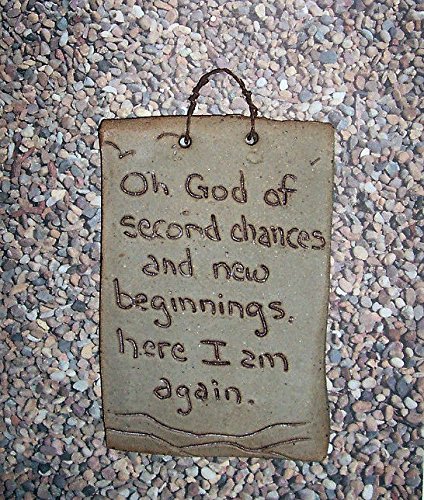 Oh God of
second chances
and new
beginnings.
here I am
again.